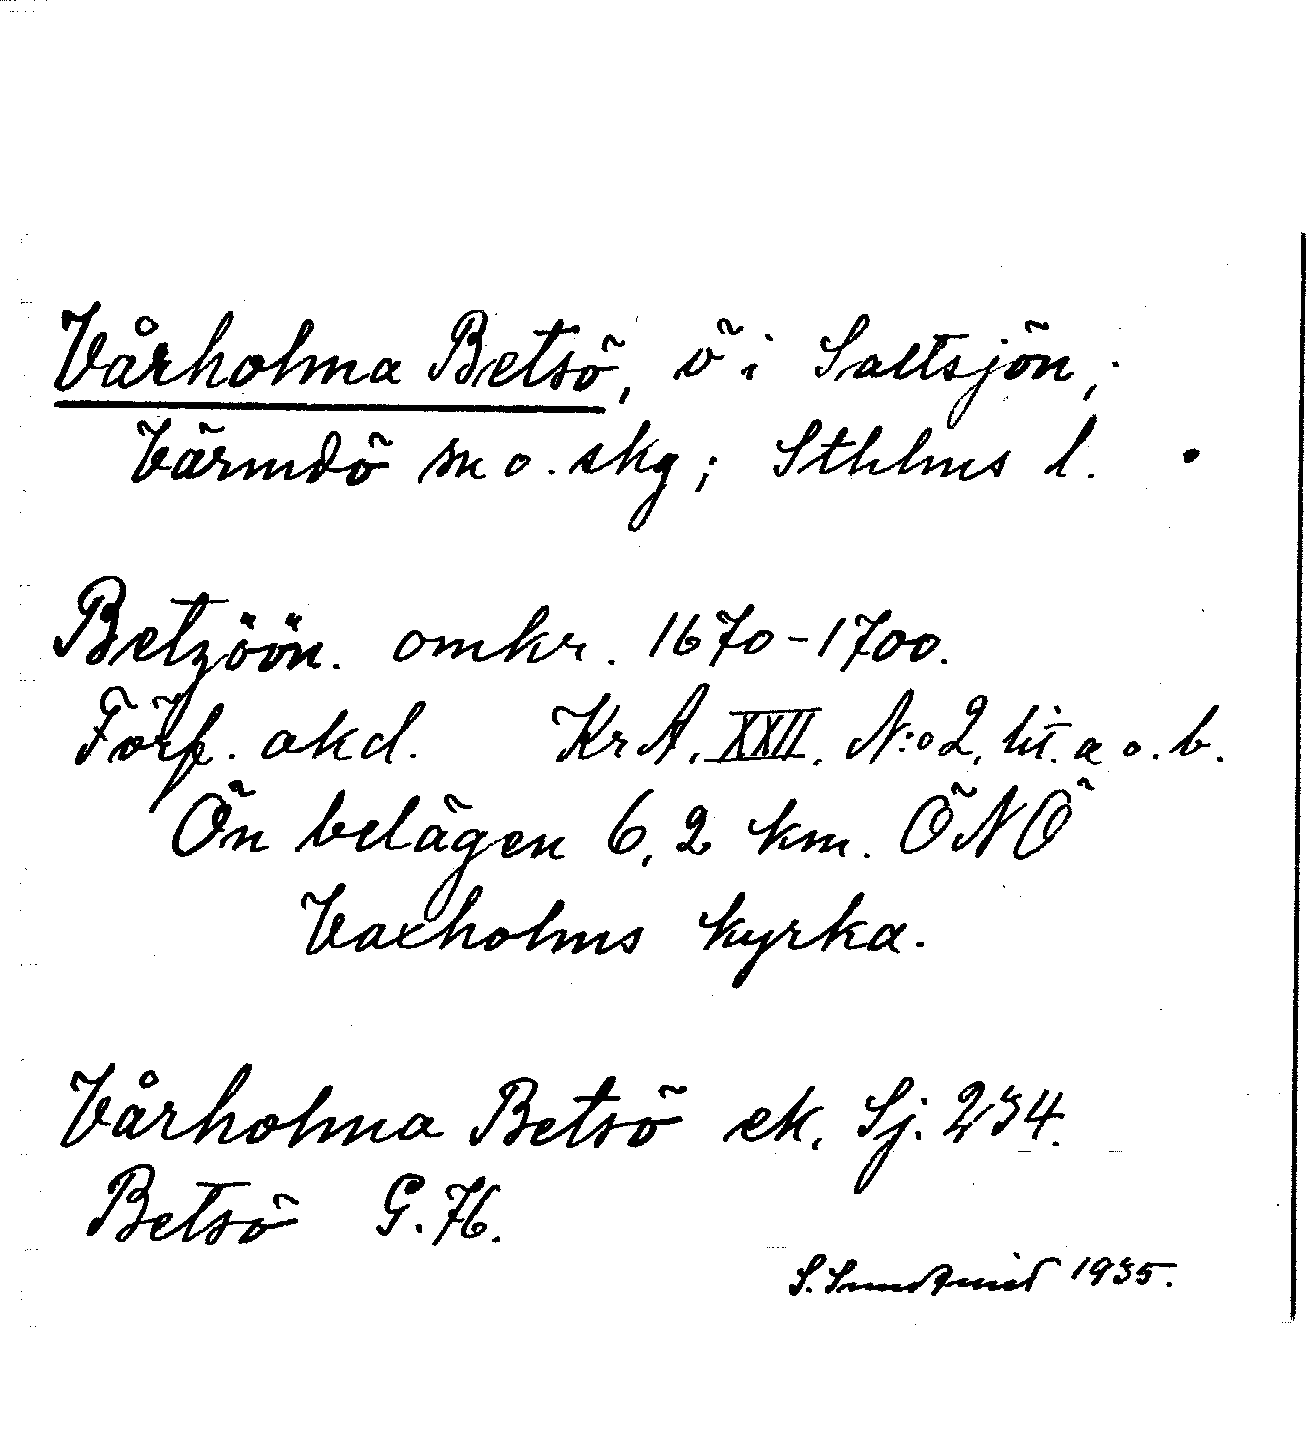 Vårholma Betsö, ö i Saltsjön,
Värmdö sn o. skg; Sthlms l.
Betzöön. omkr. 1670-1700.
Förf. okd. KrA. XXII. N:o 2, lit. a o. b.
Ön belägen 6,2 km. ÖNÖ
Vaxholms kyrka.
Vårholma Betsö ek. Sj. 234.
Betsö G.76.
S. Sundqvist 1935.